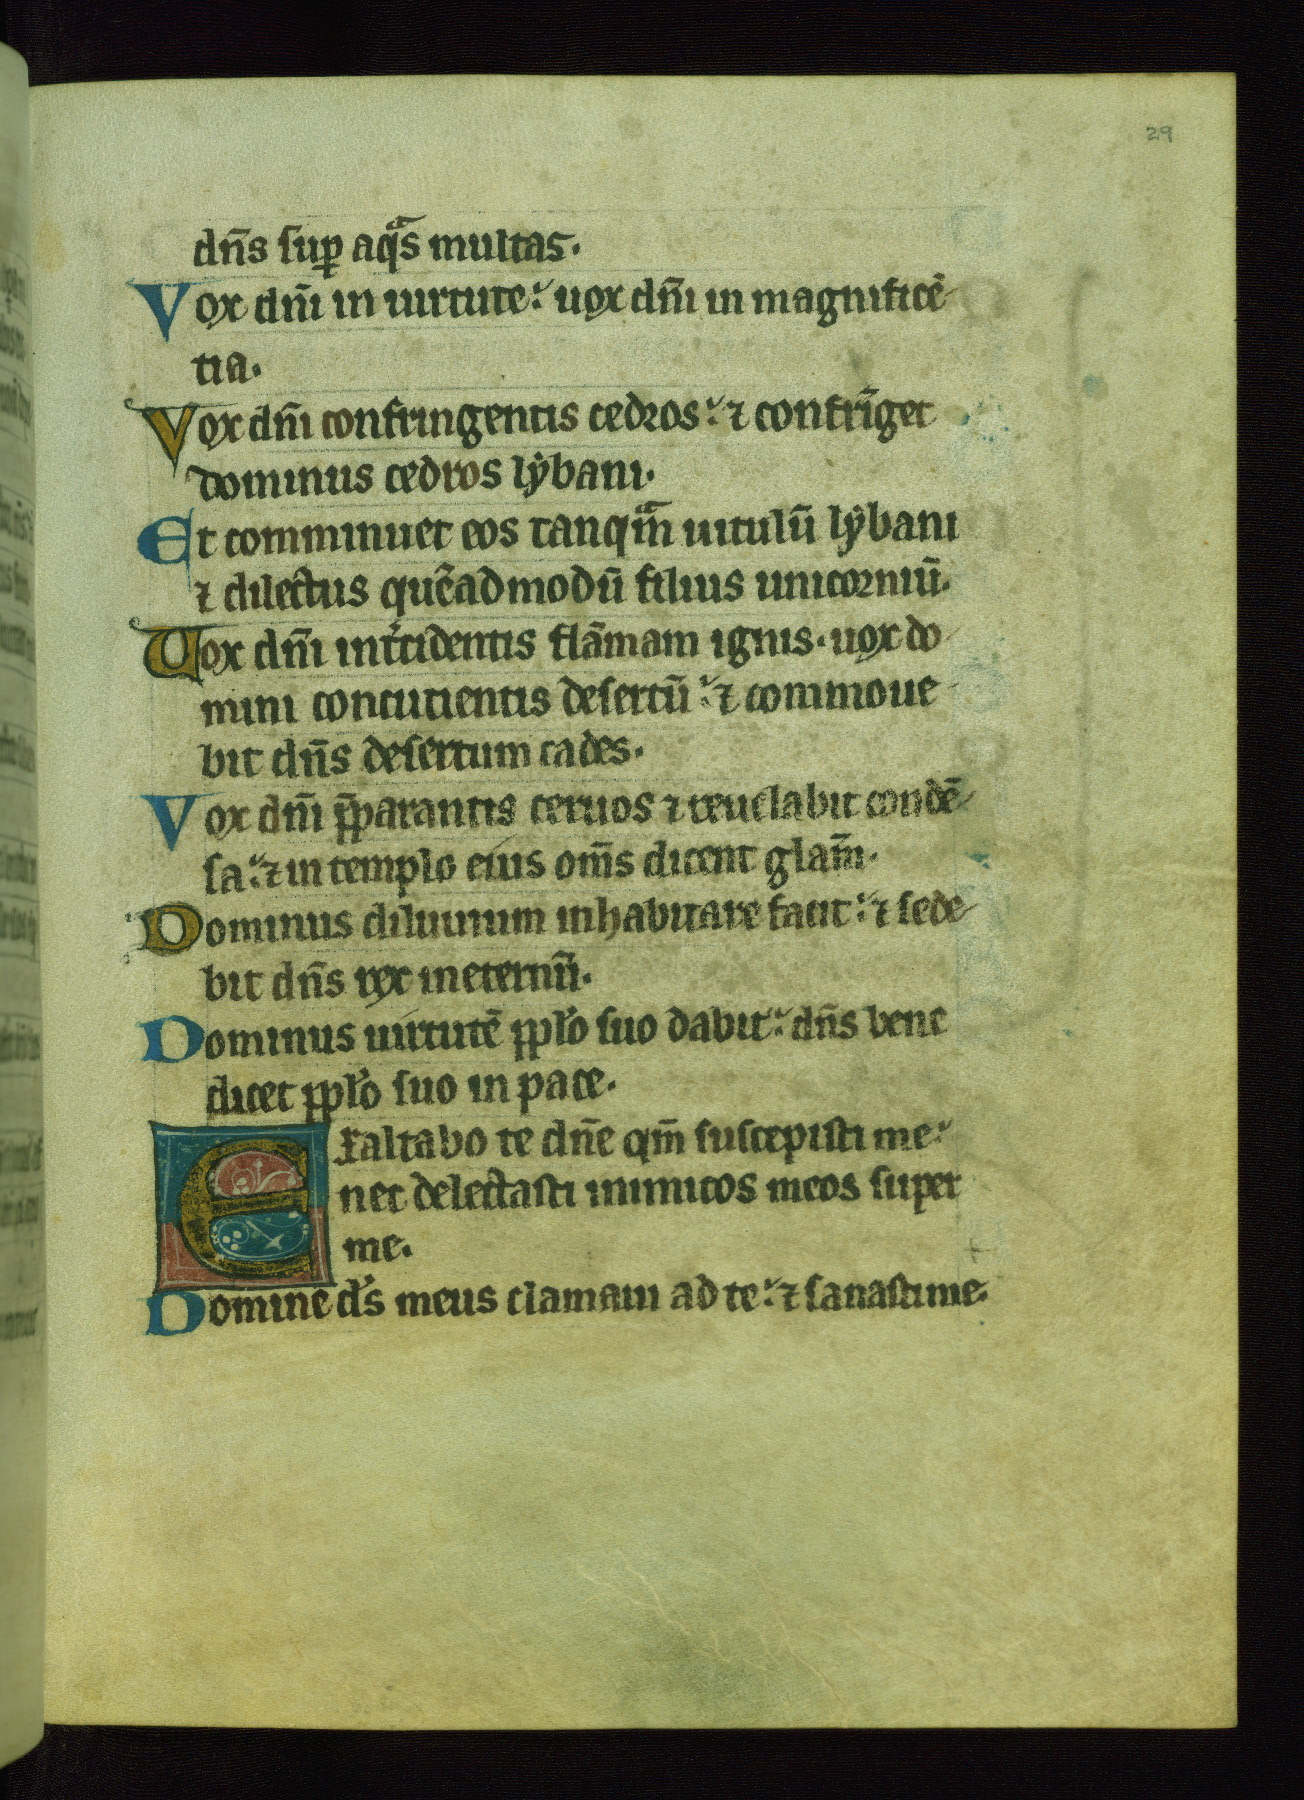 29
dn̄s suꝑ aqᷓs multas.
Vox dn̄i in uirtute: uox dn̄i in magnificē-
tia.
Vox dn̄i confringentis cedros: ⁊ confrīget
dominus cedros lẏbani.
Et comminuet eos tanqᷓm̄ uitulū lẏbani
⁊ dilectus quēadmodū filius unicorniū.
Uox dn̄i int̄cidentis flām̄am ignis. uox do-
mini concutientis desertū: ⁊ commoue-
bit dn̄s desertum cades.
Vox dn̄i p̄parantis ceruos ⁊ reuelabit condē-
sa: ⁊ in templo eius om̄s dicent glam̄.
Dominus diluuium inhabitare facit: ⁊ sede-
bit dn̄s rex in eternū.
Dominus uirtutē ppl̄o suo dabit: dn̄s bene
dicet ppl̄o suo in pace.
Exaltabo te dn̄e qm̄ suscepisti me:
nec delectasti inimicos meos super
me.
Domine ds̄ meus clamaui ad te: ⁊ sanasti me.